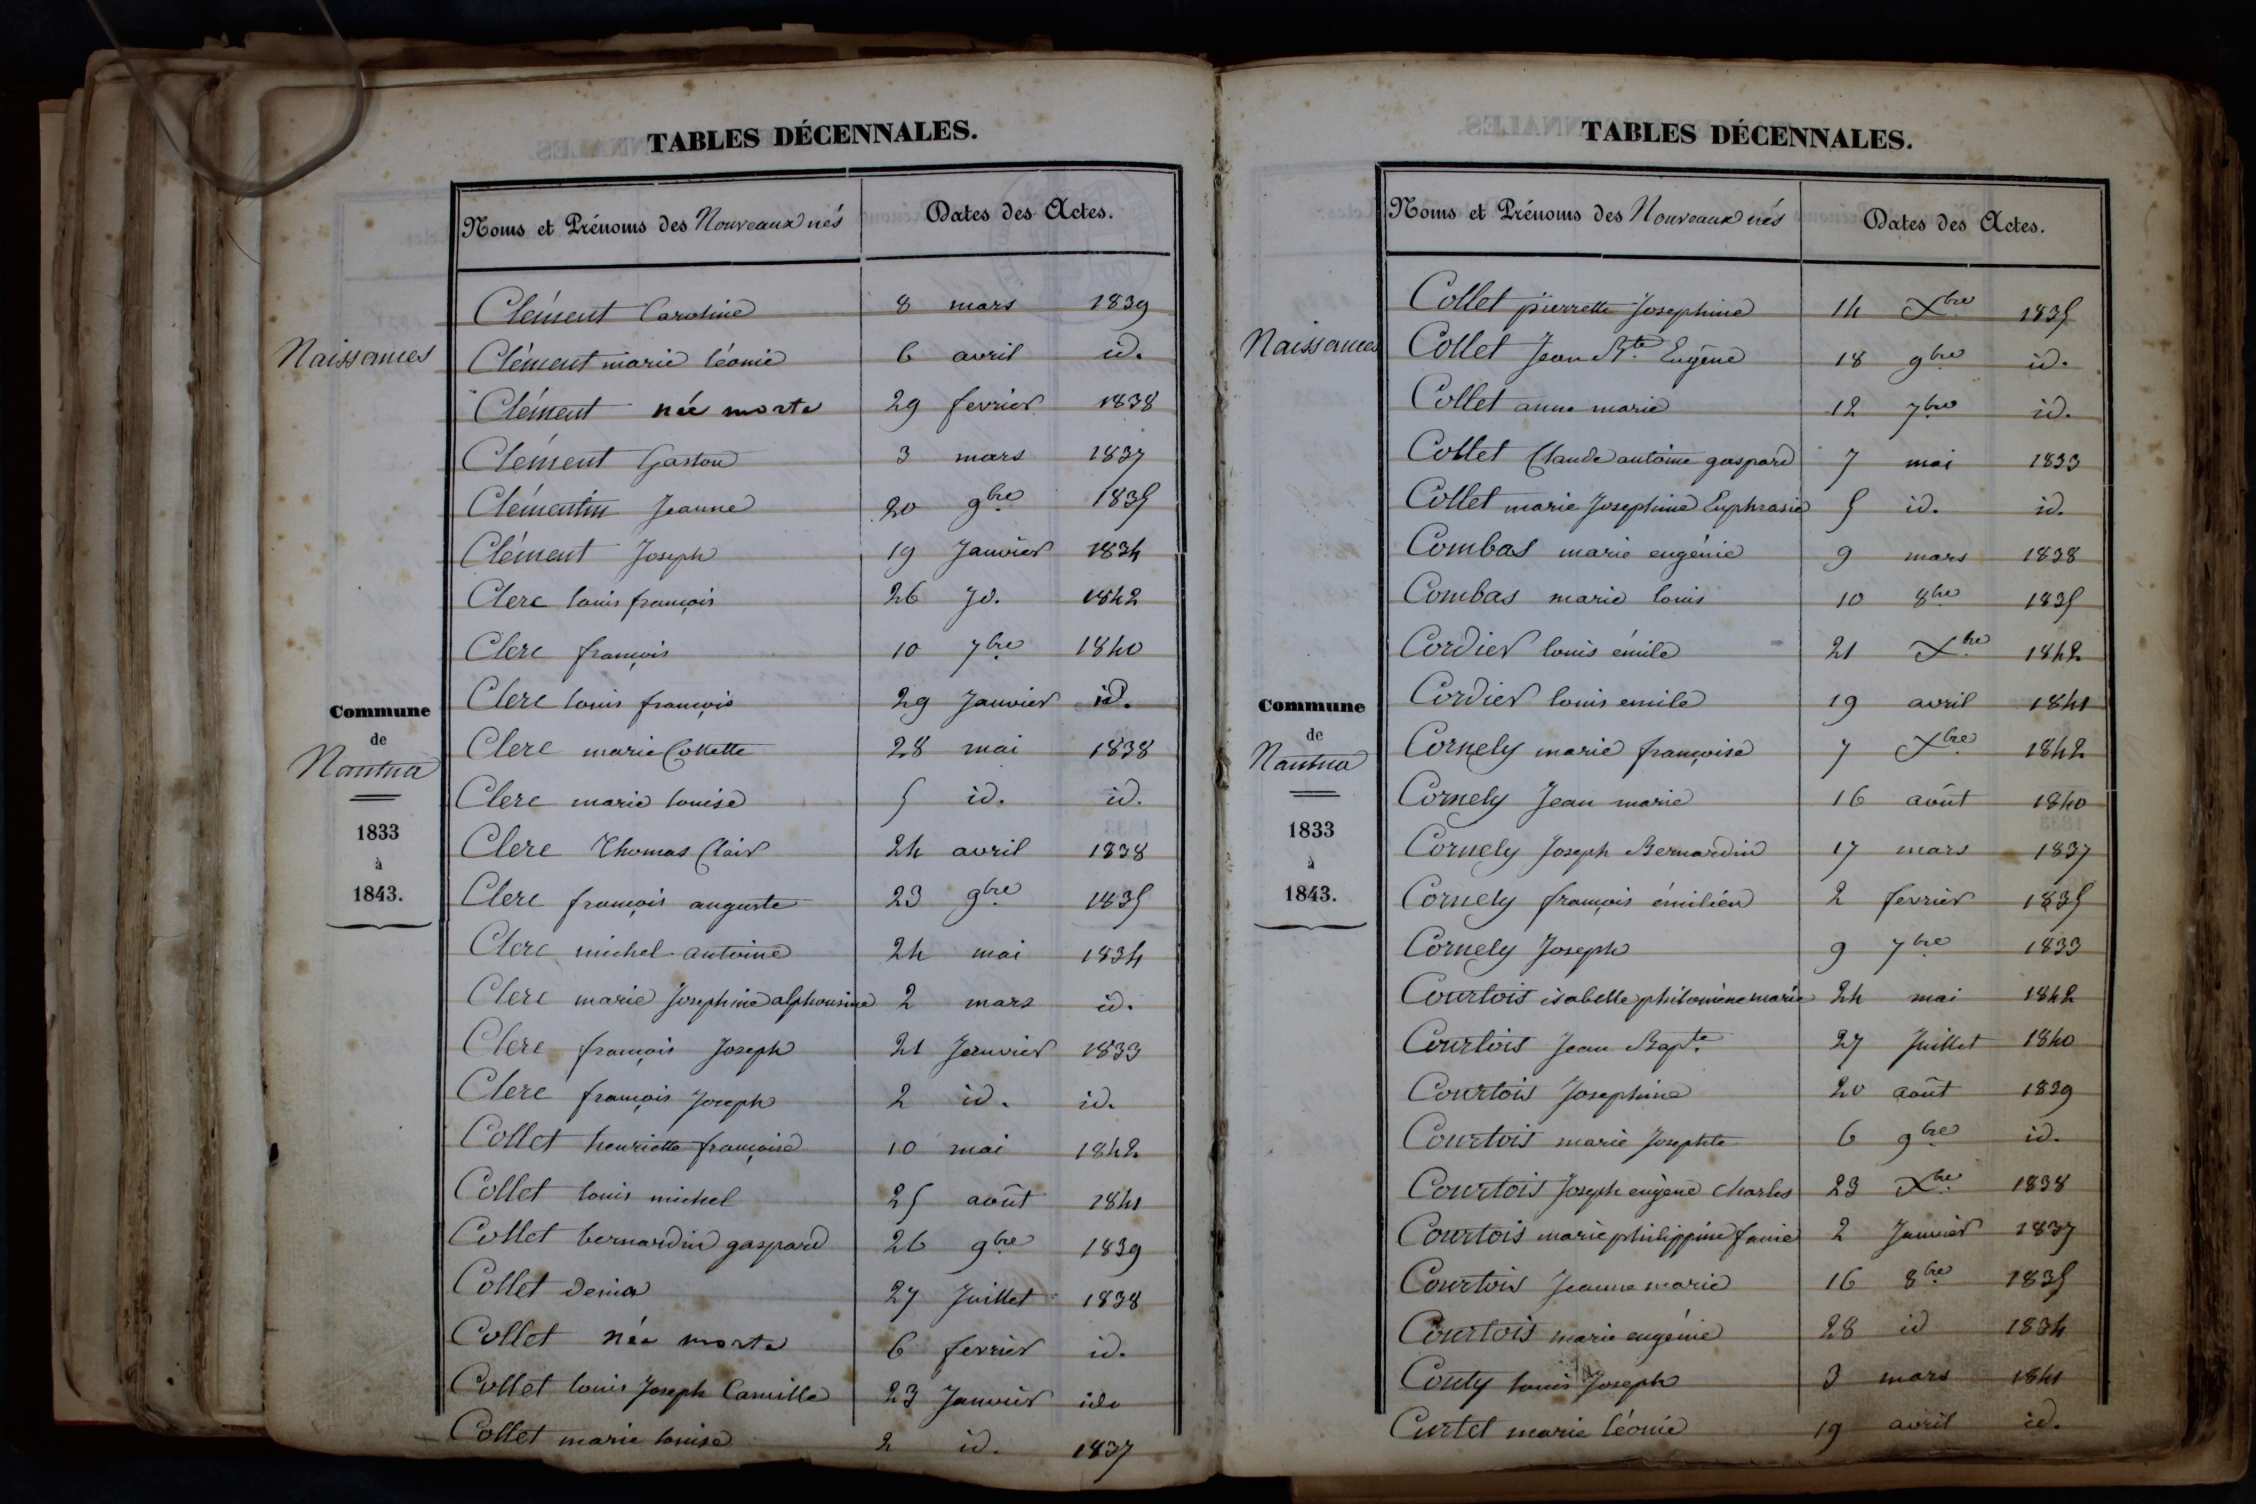 TABLES DÉCENNALES.
Noms et Prénoms des Nouveaux nés Dates des Actes.
Naissances
Commune
de
Nantua
1833
à
1843.
Clément Caroline 8 mars 1839
Clément marie léonie 6 avril id.
Clément née morte 29 fevrier 1838
Clément Gaston 3 mars 1837
Clémentin Jeanne 20 9bre 1835
Clément Joseph 19 Janvier 1834
Clerc louis françois 26 Jd. 1842
Clerc françois 10 7bre 1840
Clerc louis françois 29 Janvier id.
Clerc marie Collette 28 mai 1838
Clerc marie louise 5 id. id.
Clerc Thomas Clair 24 avril 1838
Clerc françois auguste 23 9bre 1835
Clerc michel antoine 24 mai 1834
Clerc marie Josephine alphonsine 2 mars id.
Clerc françois Joseph 21 Janvier 1833
Clerc françois Joseph 2 id. id.
Collet henriette françoise 10 mai 1842
Collet louis michel 25 août 1841
Collet bernardin gaspard 26 9bre 1839
Collet 27 Juillet 1838
Collet née morte 6 fevrier id.
Collet louis Joseph Camille 23 Janvier id.
Collet marie louise 2 id. 1837
TABLES DÉCENNALES.
Noms et Prénoms des Nouveaux nés Dates des Actes.
Naissances
Commune
de
Nantua
1833
à
1843.
Collet pierrette Josephine 14 Xbre 1835
Collet Jean Bte Eugène 18 9bre id.
Collet anne marie 12 7bre id.
Collet Claude antoine gaspard 7 mai 1833
Collet marie Josephine Euphrasie 5 id. id.
Combas marie eugénie 9 mars 1838
Combas marie louis 10 8bre 1835
Cordier louis émile 21 Xbre 1842
Cordier louis emile 19 avril 1841
Cornely marie françoise 7 Xbre 1842
Cornely Jean marie 16 août 1840
Cornely Joseph Bernardin 17 mars 1837
Cornely françois émilien 2 fevrier 1835
Cornely Joseph 9 7bre 1833
Courtois isabelle philomène marie 24 mai 1842
Courtois Jean Bapte 27 Juillet 1840
Courtois Josephine 20 août 1839
Courtois marie Josephte 6 9bre id.
Courtois Joseph eugène Charles 23 Xbre 1838
Courtois marie philippine fanie 2 Janvier 1837
Courtois Jeanne marie 16 8bre 1835
Courtois marie eugénie 28 id 1834
Couty louis Joseph 3 mars 1841
Curtet marie léonie 19 avril id.